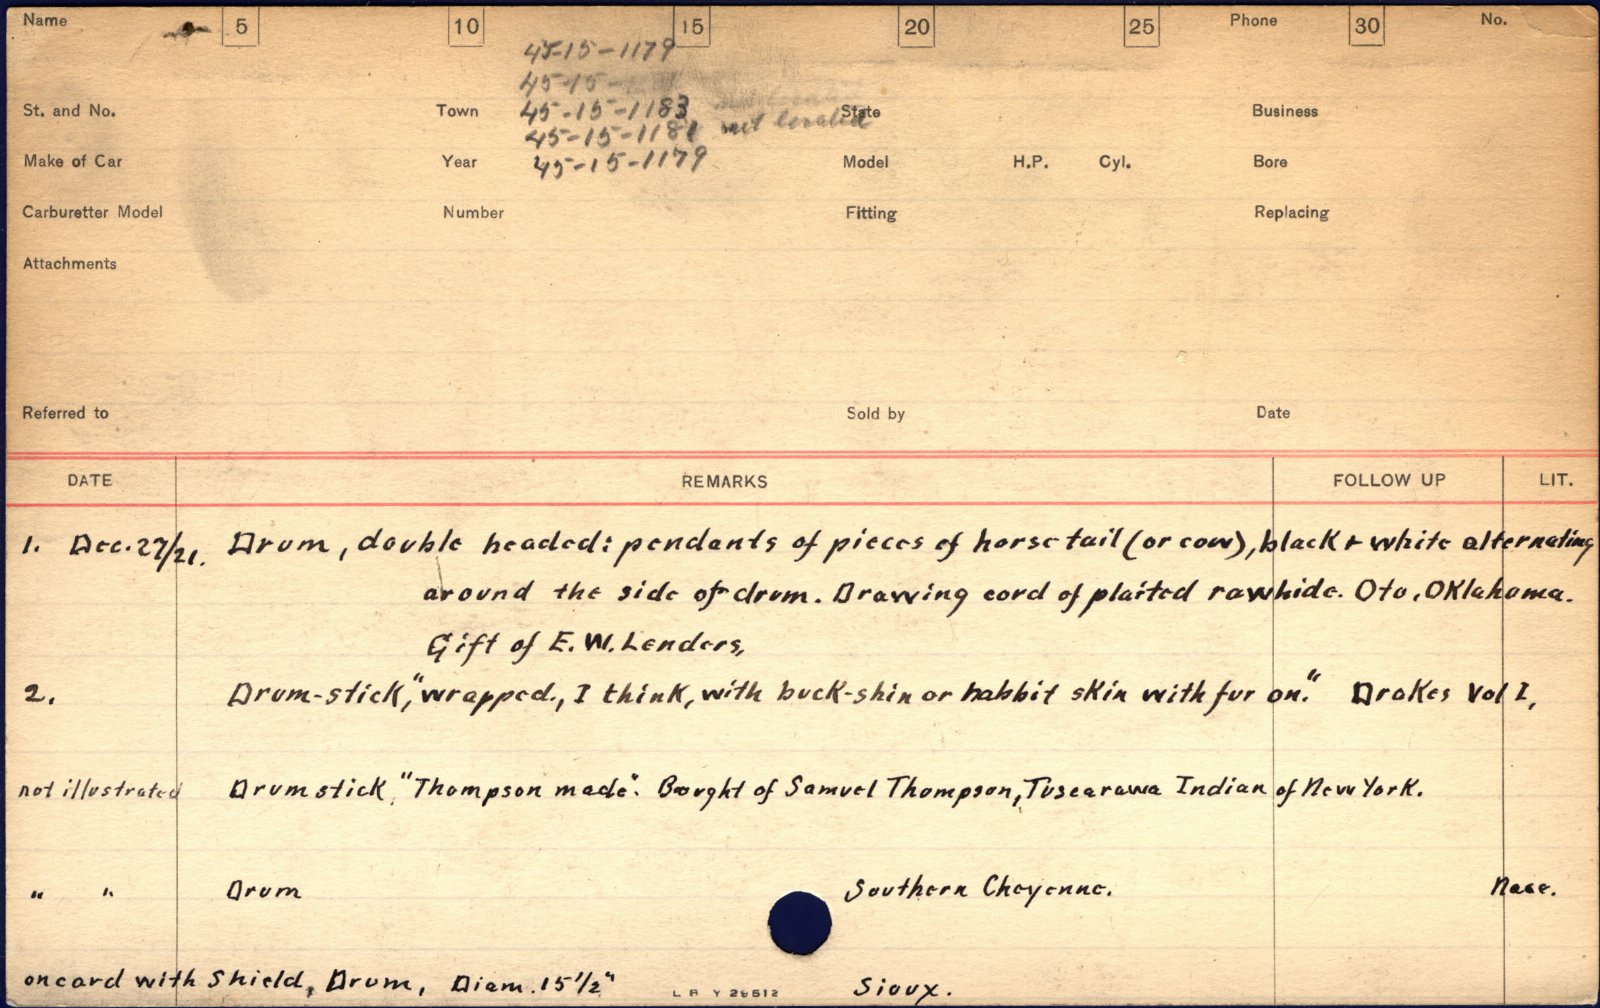 Name 5 10 15 20 25 Phone 30 No.
45-15-1179
45-15-
St. and No. Town 45-15-1183 State Business
45-15-1181 not located
Make of Car Year 45-15-1179 Model H.P. Cyl. Bore
Carburetter Model Number Fitting Replacing
Attachments
Referred to Sold by Date
DATE REMARKS FOLLOW UP LIT.
1. Dec. 27/21. Drum, double headed: pendants of pieces of horse tail (or cow), black + white alternating
around the side of drum. Drawing cord of plaited rawhide. Oto, Oklahoma.
Gift of E. W. Lenders,
2. Drum-stick, "wrapped, I think, with buck-shin or habbit skin with fur on." Drakes Vol I,
not illustrated Drumstick "Thompson made". Bought of Samuel Thompson, Tuscarawa Indian of New York.
" " Drum Southern Cheyenne. Nase.
on card with Shield, Drum, Diam. 15 1/2" L B Y 29512 Sioux.